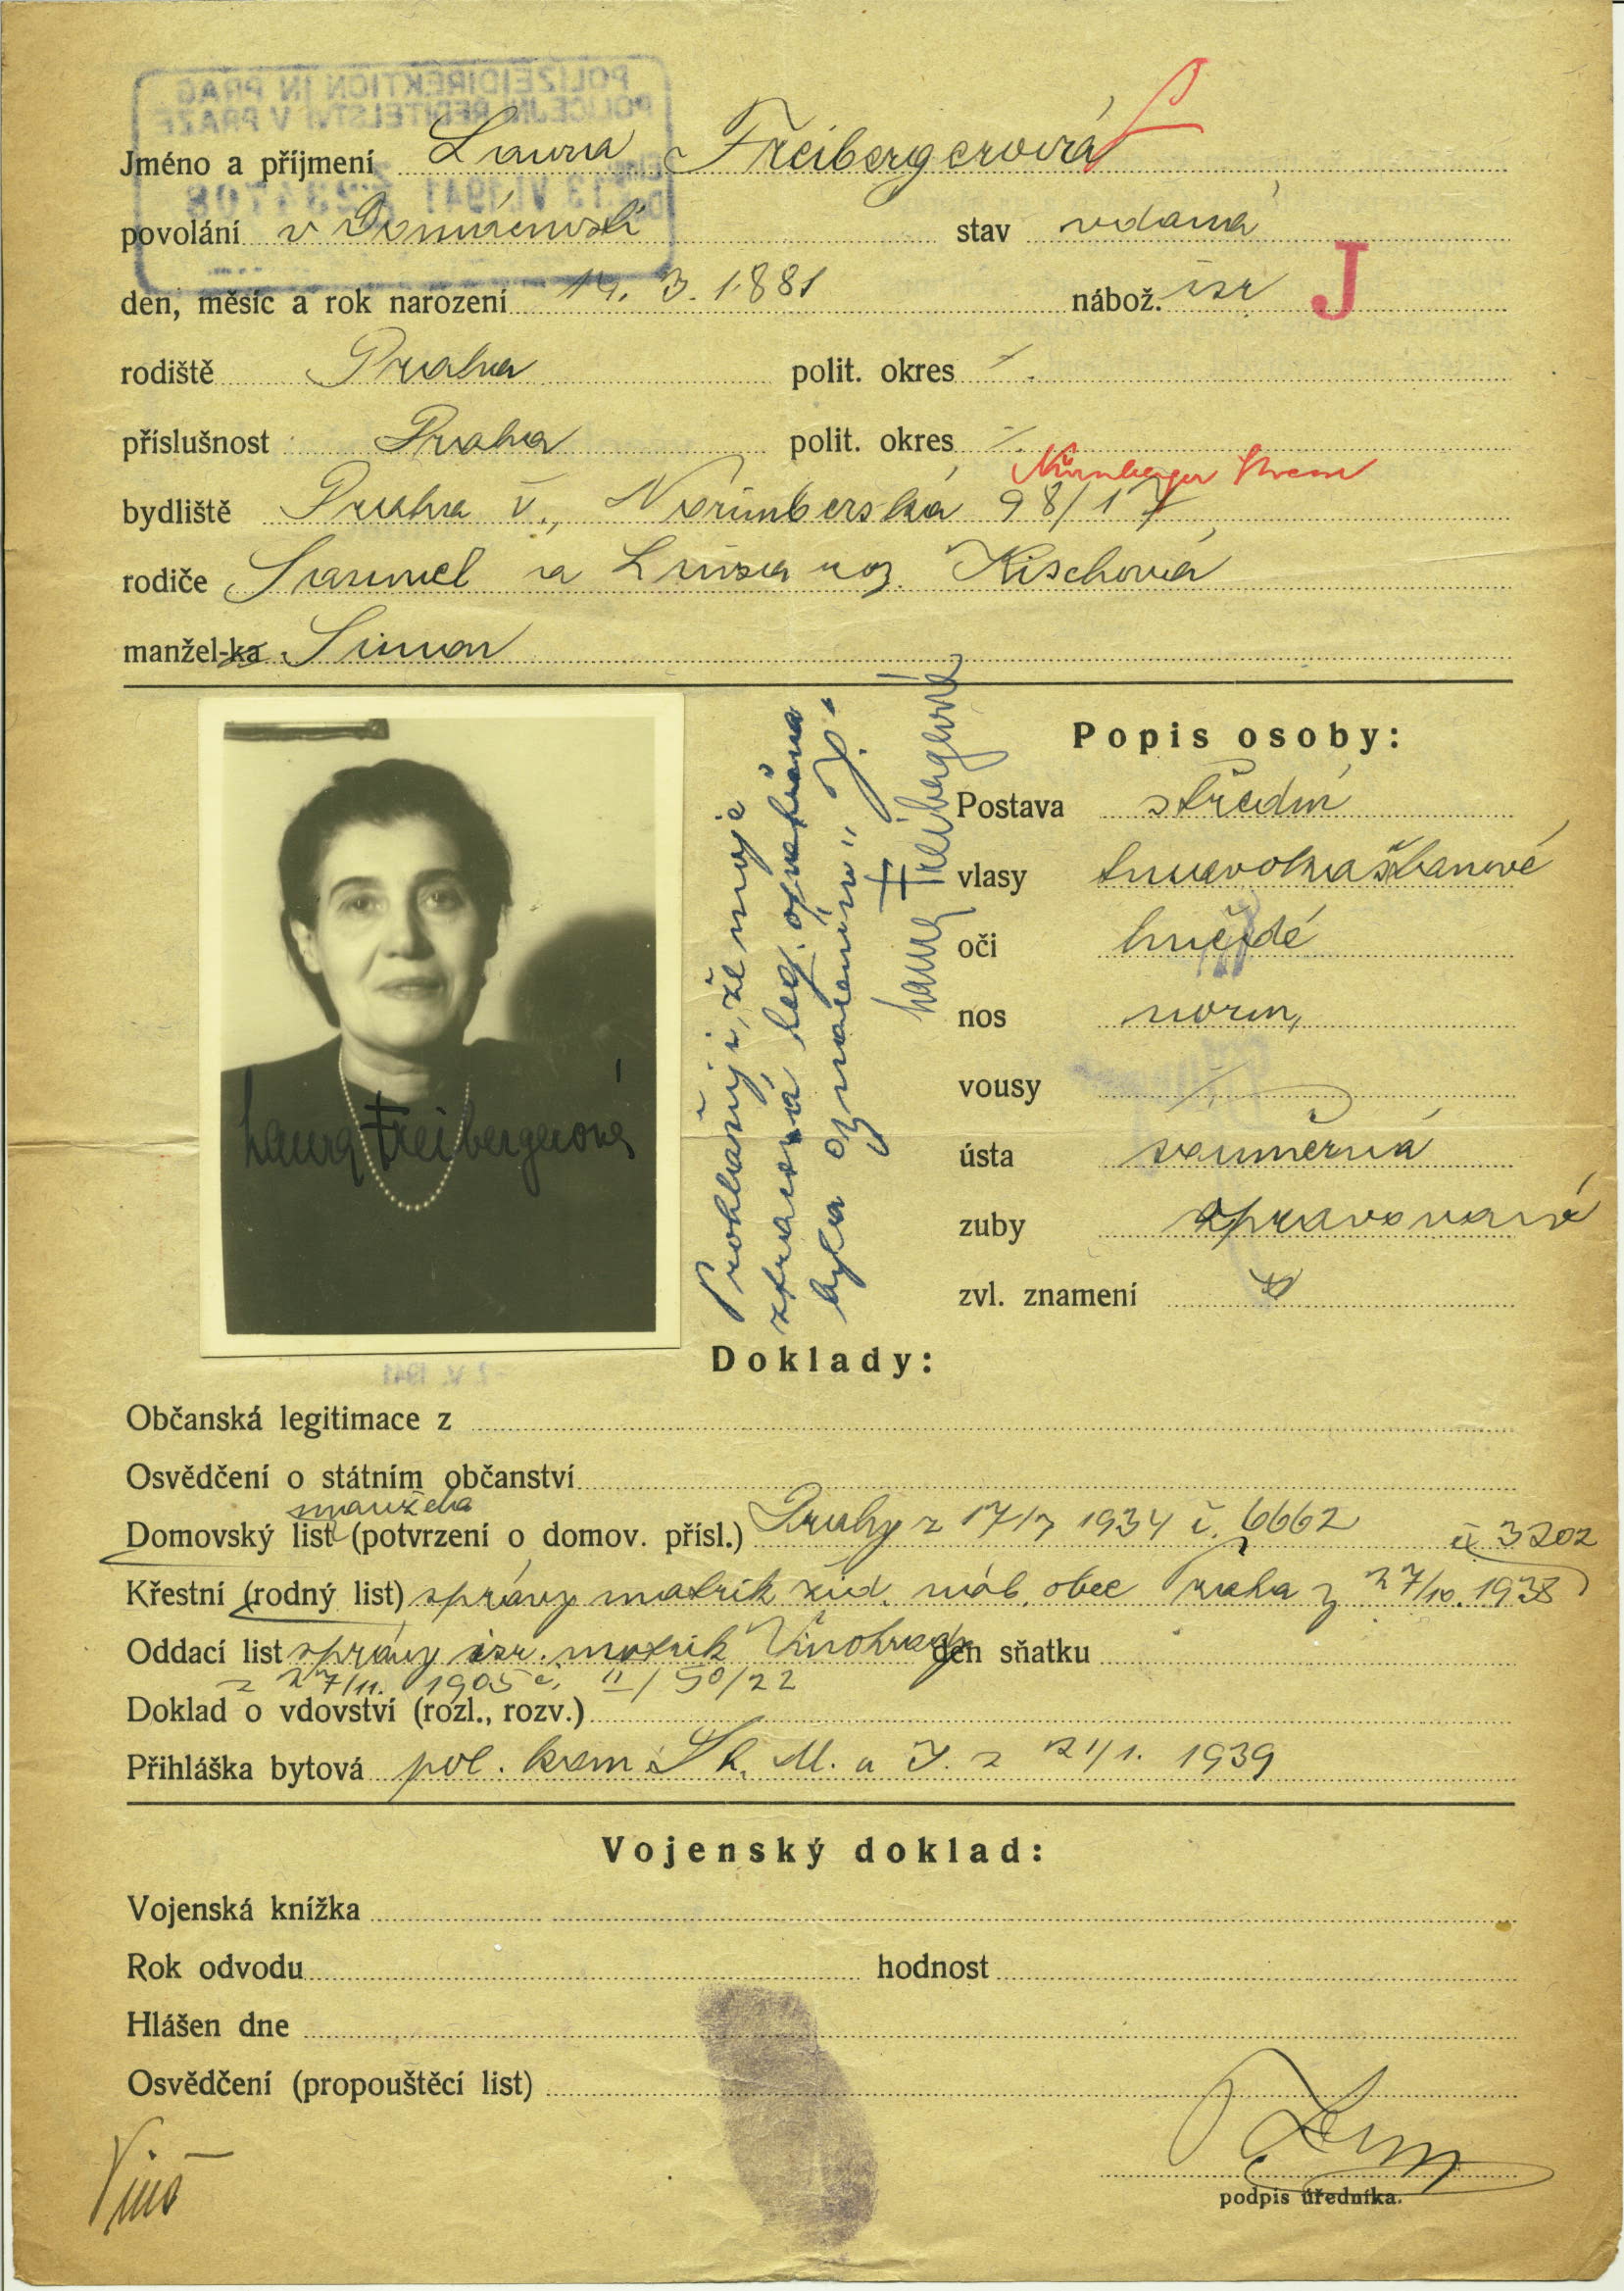 POLIZEIDIREKTION IN PRAG
POLICEJNÍ ŘEDITELSTVÍ V PRAZE
13 VI. 1941
Jméno a příjmení Laura Freibergerová
povolání v domácnosti stav vdaná
den, měsíc a rok narození 14. 3. 1881 nábož. isr J
rodiště Praha polit. okres
příslušnost Praha polit. okres
Nürnberger
bydliště Praha V., Norimberská 98/17
rodiče Samuel a Luisa roz. Kischová
manžel-ka Simon
Laura Freibergerová
Prohlašuji, že moje
ztracená leg. opatřena
byla označením „J.
Laura Freibergerová
Popis osoby:
Postava střední
vlasy tmavokaštanové
oči hnědé
nos norm.
vousy
ústa souměrná
zuby spravované
zvl. znamení
Doklady:
7. V. 1941
Občanská legitimace z
Osvědčení o státním občanství
manžela
Domovský list (potvrzení o domov. přísl.) Prahy z 17/7 1934 č. 6662
č 3202
Křestní (rodný list) správy matrik žid. náb. obec Praha z 27/10. 1938
Oddací list správy isr. matrik Vinohrady den sňatku
z 27/11. 1905 č. II/50/22
Doklad o vdovství (rozl., rozv.)
Přihláška bytová pol. kom. M. a J. z 21/1. 1939
Vojenský doklad:
Vojenská knížka
Rok odvodu hodnost
Hlášen dne
Osvědčení (propouštěcí list)
podpis úředníka.